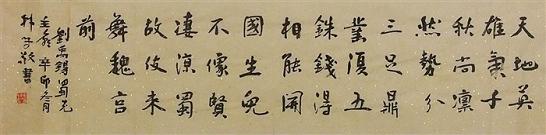 天地英
雄氣千
秋尚凛
然勢分
三足鼎
業復五
銖錢得
相能開
國生兒
不像賢
凄涼蜀
故伎來
舞魏宫
前
劉禹錫蜀先
主廟辛卯冬月
書